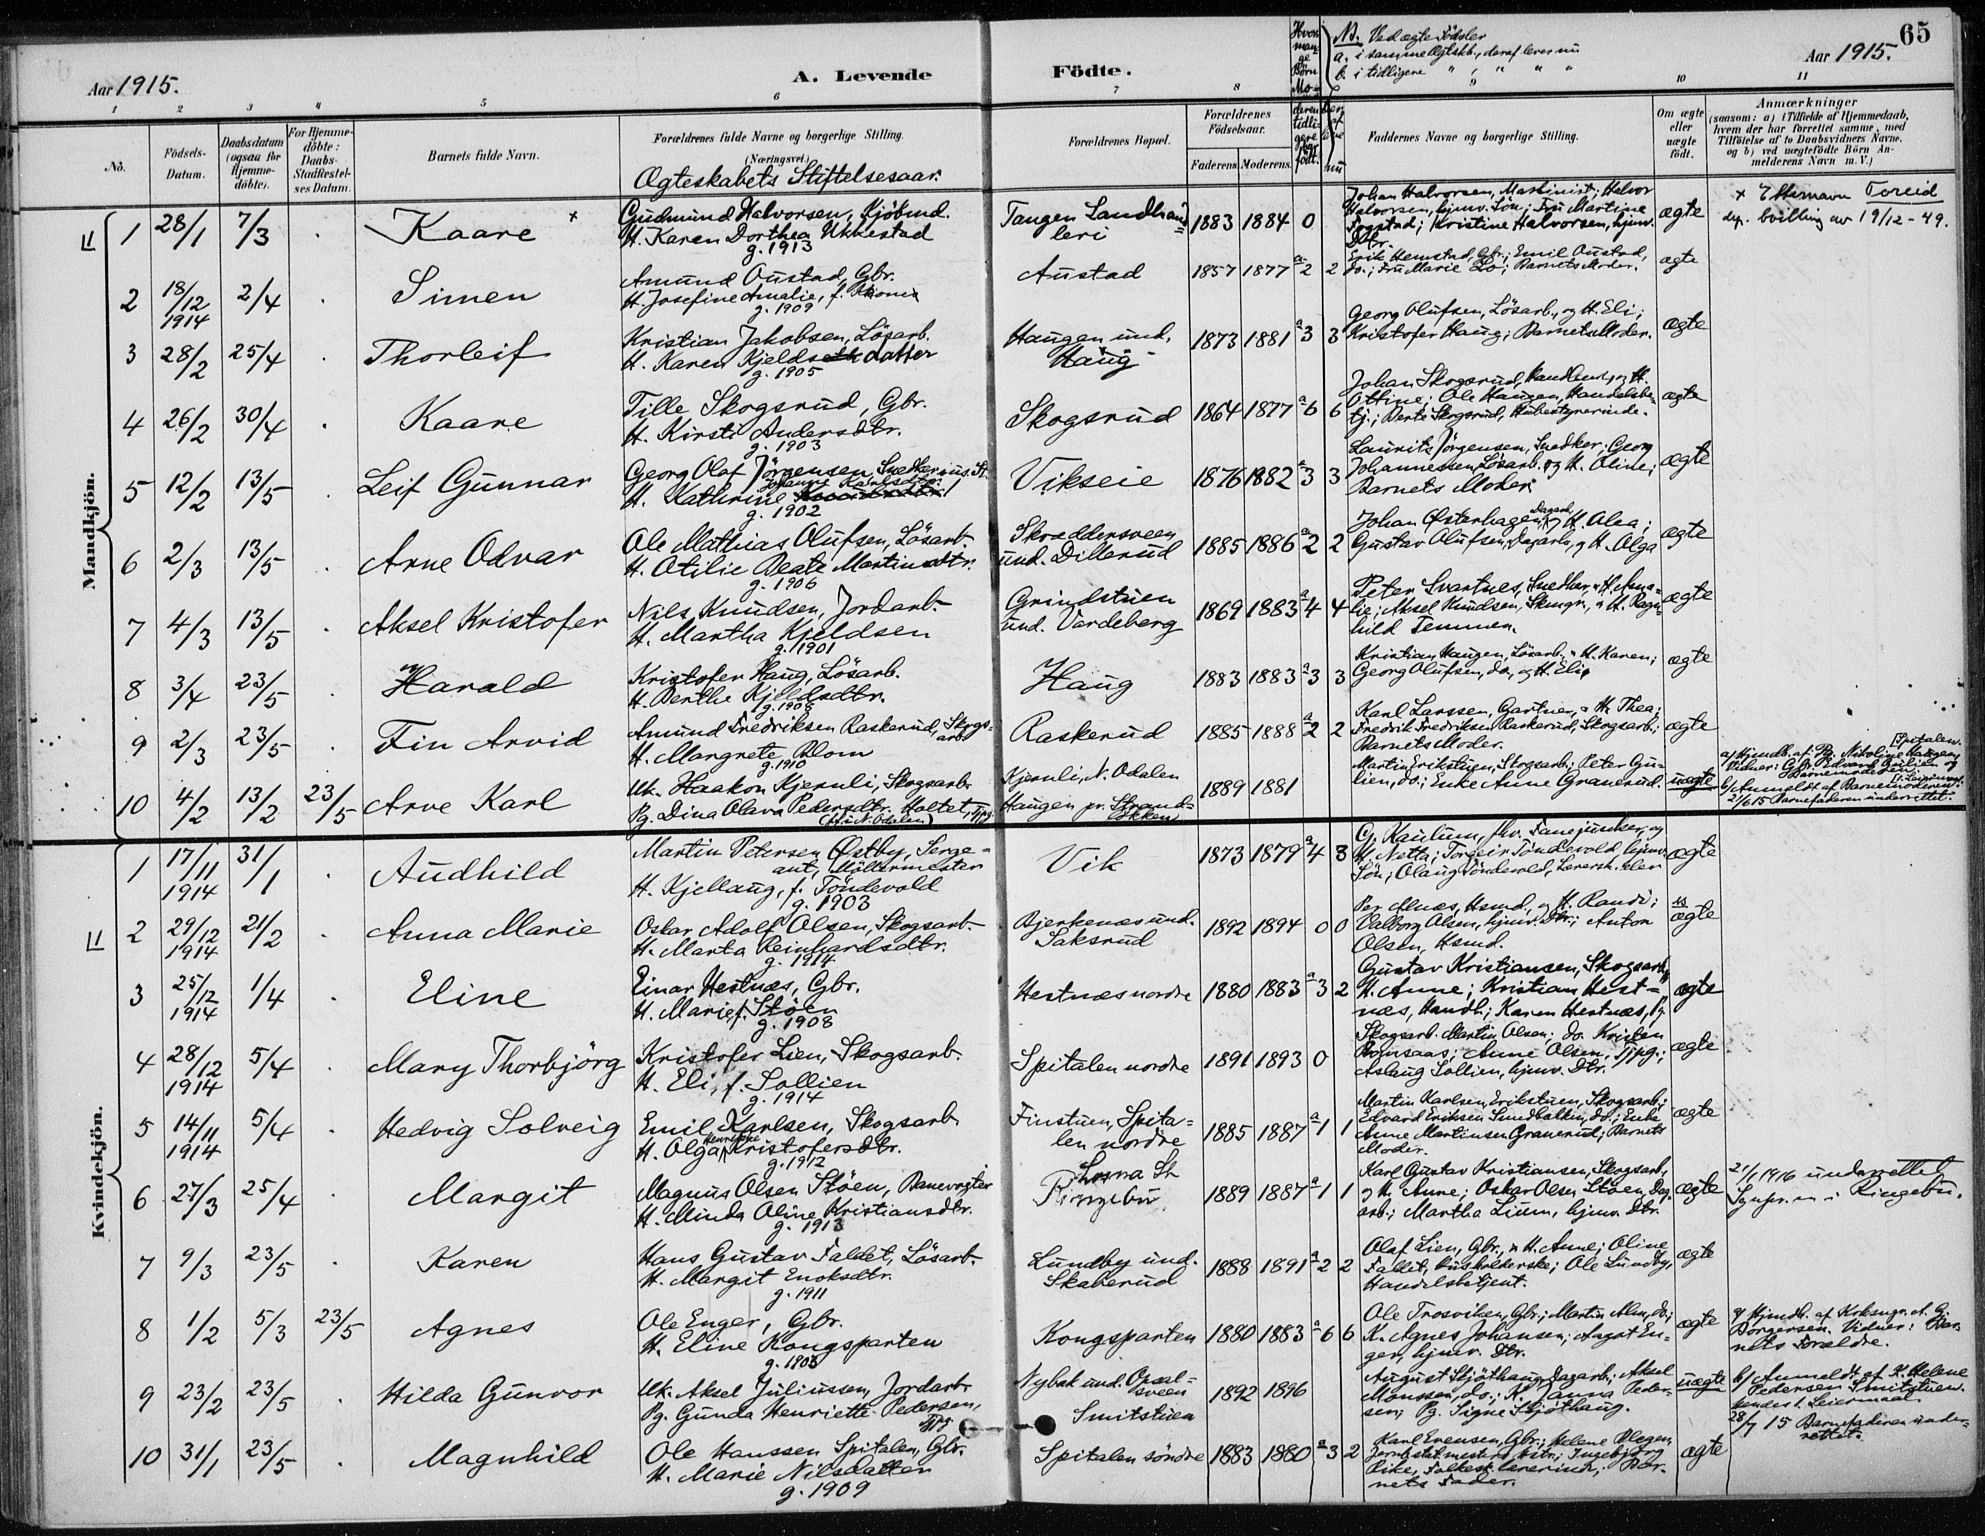 65
Aar 1915.
A. Levende
Födte.
Aar 1915.
Hvor mange Börn Moderen tidligere har födt.
deraf lever nu
NB. Ved ægte Födsler
a. i samme Ægtskb., deraf lever nu
b. i tidligere " " " "
1 2 3 4 5 6 7 8 9 10 11
No.
Födsels-Datum.
Daabsdatum (ogsaa for Hjemmedöbte).
For Hjemmedöbte: Daabs-Stadfæstelses Datum.
Barnets fulde Navn.
Forældrenes fulde Navne og borgerlige Stilling.
(Næringsvei.)
Ægteskabets Stiftelsesaar.
Forældrenes Bopæl.
Forældrenes Födselsaar.
Faderens. Moderens.
Faddernes Navne og borgerlige Stilling.
Om ægte eller uægte födt.
Anmærkninger
(saasom: a) i Tilfælde af Hjemmedaab, hvem der har forrettet samme, med Tilföielse af to Daabsvidners Navne, og b) ved uægtefödte Börn Anmelderens Navn m. V.)
Mandkjön.
1 28/1 7/3 . Kaare x
Gudmund Halvorsen, Kjöbmd.
H. Karen Dorthea Ukkestad
g. 1913
Tangen Landhandleri
1883 1884 0
Johan Halvorsen, Maskinist; Halvor
Halvorsen, hjemv. Sön; Fru Martine
Fogstad; Kristine Halvorsen, hjemv.
Dtr.
ægte
x Etternavn Toreid
dep. bvilling av 19/12-49.
2 18/12 1914 2/4 . Simen
Amund Oustad, Gbr.
H. Josefine Amalie, f.
g. 1909
Austad
1857 1877 a-2 2
Erik Hemstad, Gbr.; Emil Oustad,
do.; Fru Marie Lo; Barnets Moder.
ægte
3 28/2 25/4 . Thorleif
Kristian Jakobsen, Lösarb.
H. Karen Kjeldsdatter
g. 1905
Haugen und.
Haug
1873 1881 a-3 3
Georg Olufsen, Lösarb., og H. Eli;
Kristofer Haug; Barnets Moder.
ægte
4 26/2 30/4 . Kaare
Tille Skogsrud, Gbr.
H. Kirsti Andersdtr.
g. 1903
Skogsrud
1864 1877 a-6 6
Johan Skogsrud, Handlende, og H.
Ottine; Ole Haugen, Handelsbetj.; Berte Skogsrud, Husbestyrerinde.
ægte
5 12/2 13/5 . Leif Gunnar
Georg Olaf Jörgensen, Snedker
H. Kathrine Johanne Karlsdtr.
g. 1902
Vikseie
1876 1882 a-3 3
Laurits Jörgensen, Snedker; Georg
Johannessen Lösarb. og H. Oline;
Barnets Moder.
ægte
6 2/3 13/5 . Arne Odvar
Ole Mathias Olufsen, Lösarb.
H. Otilie Beate Martinsdtr.
g. 1906
Skræddersveen
und. Dillerud
1885 1886 a-2 2
Johan Østerhagen, Dagarb. og H. Alea;
Gustav Olufsen, Dagarb., og H. Olga
ægte
7 4/3 13/5 . Aksel Kristofer
Nils Knudsen, Jordarb.
H. Martha Kjeldsen
g. 1901
Grindstuen
und. Vardeberg
1869 1883 a-4 4
Peter Svartnes, Snedker, og H. Amalie; Aksel Knudsen, Skmgr., og H. Ragnhild Temmen.
ægte
8 3/4 23/5 . Harald
Kristofer Haug, Lösarb.
H. Berthe Kjeldsdtr.
g. 1908
Haug
1883 1883 a-3 3
Kristian Haugen, Lösarb., og H. Karen;
Georg Olufsen, do, og H. Eli.
ægte
9 2/3 23/5 . Fin Arvid
Amund Fredriksen Raskerud, Skogsarb.
H. Margrete Blom
g. 1910
Raskerud
1885 1888 a-2 2
Karl Larssen, Gartner, og H. Thea;
Fredrik Fredriksen Raskerud, Skogsarb.;
Barnets Moder.
ægte
10 4/2 13/2 23/5 Arve Karl
Uk. Haakon Kjernli, Skogsarb.
Pg. Dina Olava Pedersdtr. Holtet, Tjpg.
(H. i N. Odalen)
Kjernli, N. Odalen
Haugen pr. Strandlökken
1889 1881
Martin Erikstuen, Skogsarb.; Peter Gulien, do.; Enke Anne Granerud.
uægte
a/ Hjmdb. af Pg. Nikoline Haugen, Spitalen.
Vidner: Gbr. Edvard Gulien og
Barnemoderen.
b/ Anmeldt af Barnemoderen.
21/6 15 Barnefaderen underrettet.
Kvindekjön.
1 17/11 1914 31/1 . Audhild
Martin Petersen Østby, Sergeant, Möllermester
H. Kjellaug, f. Töndevold
g. 1903
Vik
1873 1879 a-4 3
G. Kaulum, fhv. Fanejunker, og
H. Netta; Torgeir Töndevold, hjemv.
Sön; Olaug Töndevold, Lærersk. elev
ægte
2 29/12 1914 21/2 . Anna Marie
Oskar Adolf Olsen, Skogsarb.
H. Marta Reinhardsdtr.
g. 1914
Bjerkenæs und.
Saksrud
1892 1894 0 0
Per Alnæs, Hsmd., og H. Randi;
Valborg Olsen, hjmv. Dtr.; Anton
Olsen, Hsmd.
ægte
3 25/12 1914 1/4 . Eline
Einar Hestnæs, Gbr.
H. Marie f. Stöen
g. 1908
Hestnæs nordre
1880 1883 a-3 2
Gustav Kristiansen, Skogsarb.,
H. Anne; Kristian Hestnæs, Handl.; Karen Hestnæs, Pg.
ægte
4 28/12 1914 5/4 . Mary Thorbjörg
Kristofer Lien, Skogsarb.
H. Eli, f. Sollien
g. 1914
Spitalen nordre
1891 1893 0
Skogsarb. Martin Olsen; do. Kristen
Romsaas; Anne Olsen, Tjpg.;
Aslaug Sollien, hjmv. Dtr.
ægte
5 14/11 1914 5/4 . Hedvig Solveig
Emil Karlsen, Skogsarb.
H. Olga Henriette Kristofersdtr.
g. 1912
Finstuen, Spitalen nordre
1885 1887 a-1 1
Martin Karlsen, Erikstuen, Skogsarb.;
Edvard Eriksen Sundbakken, do.; Enke
Anne Martinsen Granerud; Barnets
Moder.
ægte
6 27/3 25/4 . Margit
Magnus Olsen Stöen, Banevogter
H. Minda Oline Kristiansdtr.
g. 1913
Losna St.
Ringebu
1889 1887 a-1 1
Karl Gustav Kristiansen, Skogsarb.,
og H. Anne; Oskar Olsen Stöen, Dagarb.; Martha Lium, hjmv. Dtr.
ægte
21/1 1916 underrettet
Sognepr. i Ringebu.
7 9/3 23/5 . Karen
Hans Gustav Faldet, Lösarb.
H. Margit Enoksdtr.
g. 1911
Lundby und.
Skaberud
1888 1891 a-2 2
Olaf Lien, Gbr., og H. Anne; Oline
Faldet, Husholderske; Ole Lundby,
Handelsbetjent.
ægte
8 1/2 5/3 23/5 Agnes
Ole Enger, Gbr.
H. Eline Kongsparten
g. 1903
Kongsparten
1880 1883 a-6 6
Ole Trosviken, Gbr.; Martin Alm, do.;
K. Agnes Johansen; Aagot Enger, hjmv. Dtr.
ægte
a/ Hjmdb. af Kirkesgr. A. G.
Borgersen. Vidner: Barnets Forældre.
9 23/2 23/5 . Hilda Gunvor
Uk. Aksel Juliussen, Jordarb.
Pg. Gunda Henriette Pedersen,
Tjpg.
Nybak und. Opsalsveen
Smitstuen
1892 1896
August Skjöthaug, Dagarb.; Aksel
Monssen, do.; K. Janna Pedersen; Pg. Signe Skjöthaug.
uægte
b/ Anmeldt af K. Helene
Pedersen Smitstuen.
hendes 1. Leiermaal.
28/7 15 Barnefaderen underrettet.
10 31/1 23/5 . Magnhild
Ole Hanssen Spitalen, Gbr.
H. Marie Nilsdatter
g. 1909
Spitalen söndre
1883 1880 a-3 2
Karl Evensen, Gbr.; Helene Blegen,
Jernbstat.mesters Dtr.; Ingebjörg
Rike, Folkesk.lærerinde; Barnets Fader.
ægte